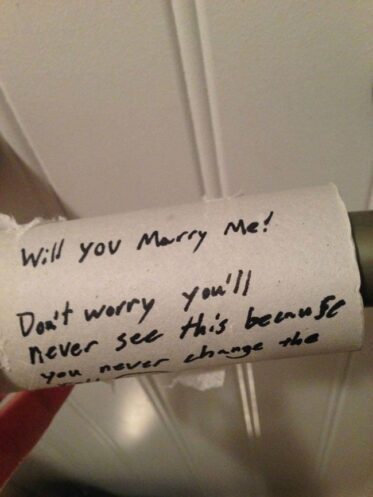 Will you Marry Me!
Don't worry you'll
never see this because
you never change the